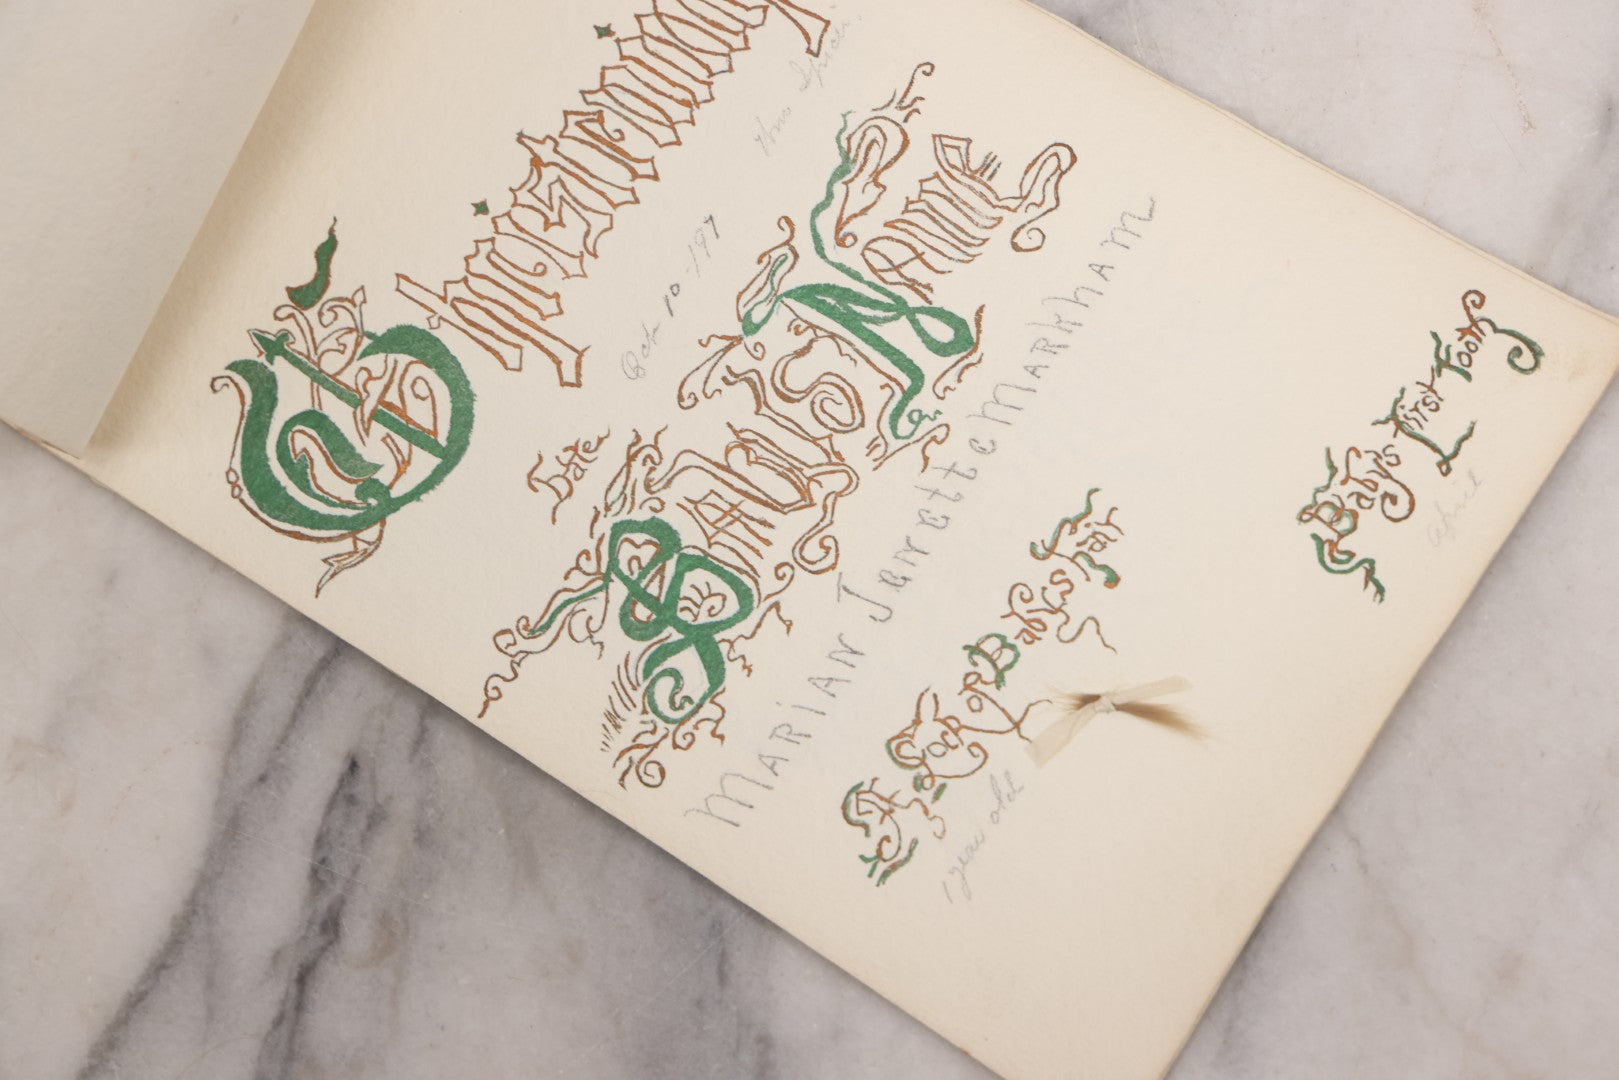 Christening
Date Oct 10-197
Baby's Name
Marian Janette Markham
A Lock of Baby's Hair
1 year old
Baby's First Tooth
April